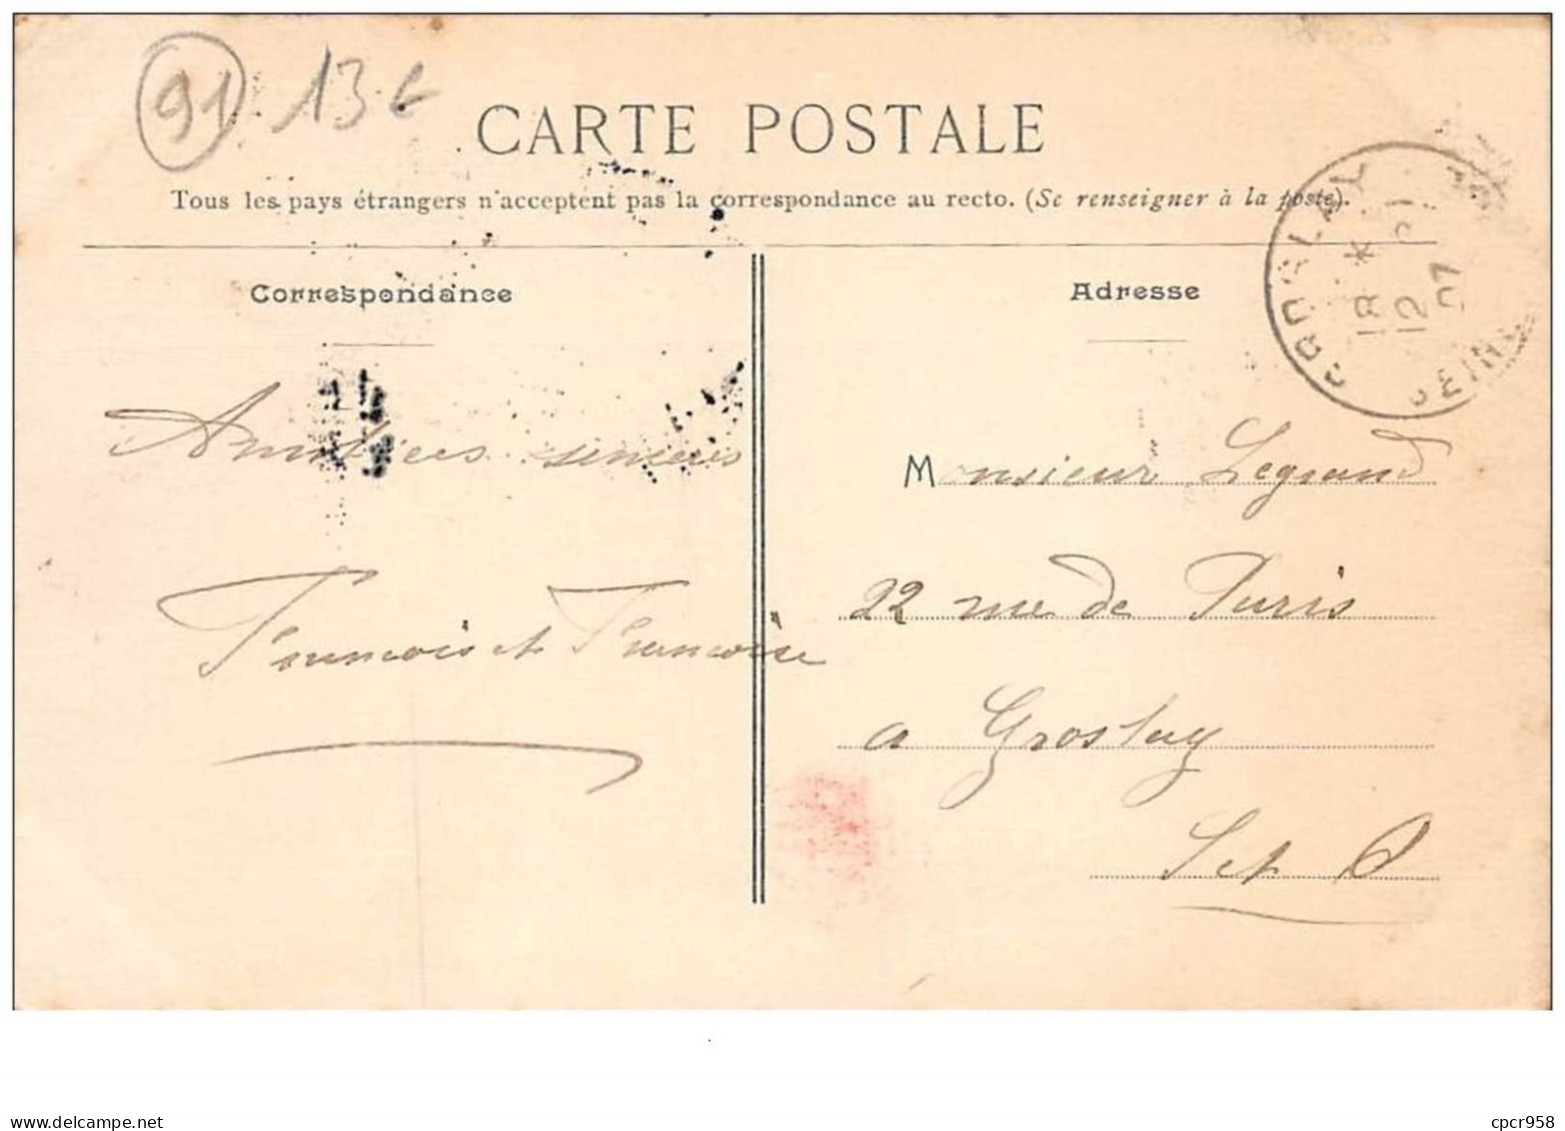 91 13€
CARTE POSTALE
Tous les pays étrangers n'acceptent pas la correspondance au recto. (Se renseigner à la poste).
Correspondance
Adresse
Amitiers sinceres
Francois et Francoise
Monsieur Legrand
22 rue de Paris
a Groslay
S et O
12
07
SEIN
www.delcampe.net
cpcr958